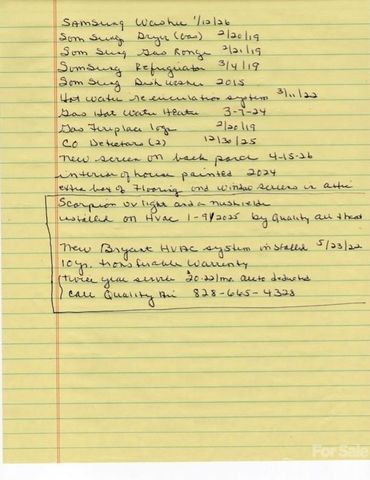 SAMSung Washer 1/12/26
Som Sung Dryer (Gas) 2/20/19
Som Sung Gas Range 2/21/19
SomSung Refrigerator 3/4/19
Som Sung Dish Washer 2015
Hot water recirculation system 3/11/22
Gas Hot Water Heater 3-7-24
Gas Fireplace logs 2/20/19
CO Detectors (2) 12/30/25
New screen on back porch 4-15-26
interior of house painted 2024
extra box of Flooring and Window screens in attic
Scorpion UV light and a
installed on HVAC 1-9/2025 by Quality Air & Heat
New Bryant HVAC system installed 5/23/22
10 yr. transferable Warrenty
twice year service 20.22/mo. auto deducted
Call Quality Air 828-665-4323
For Sale